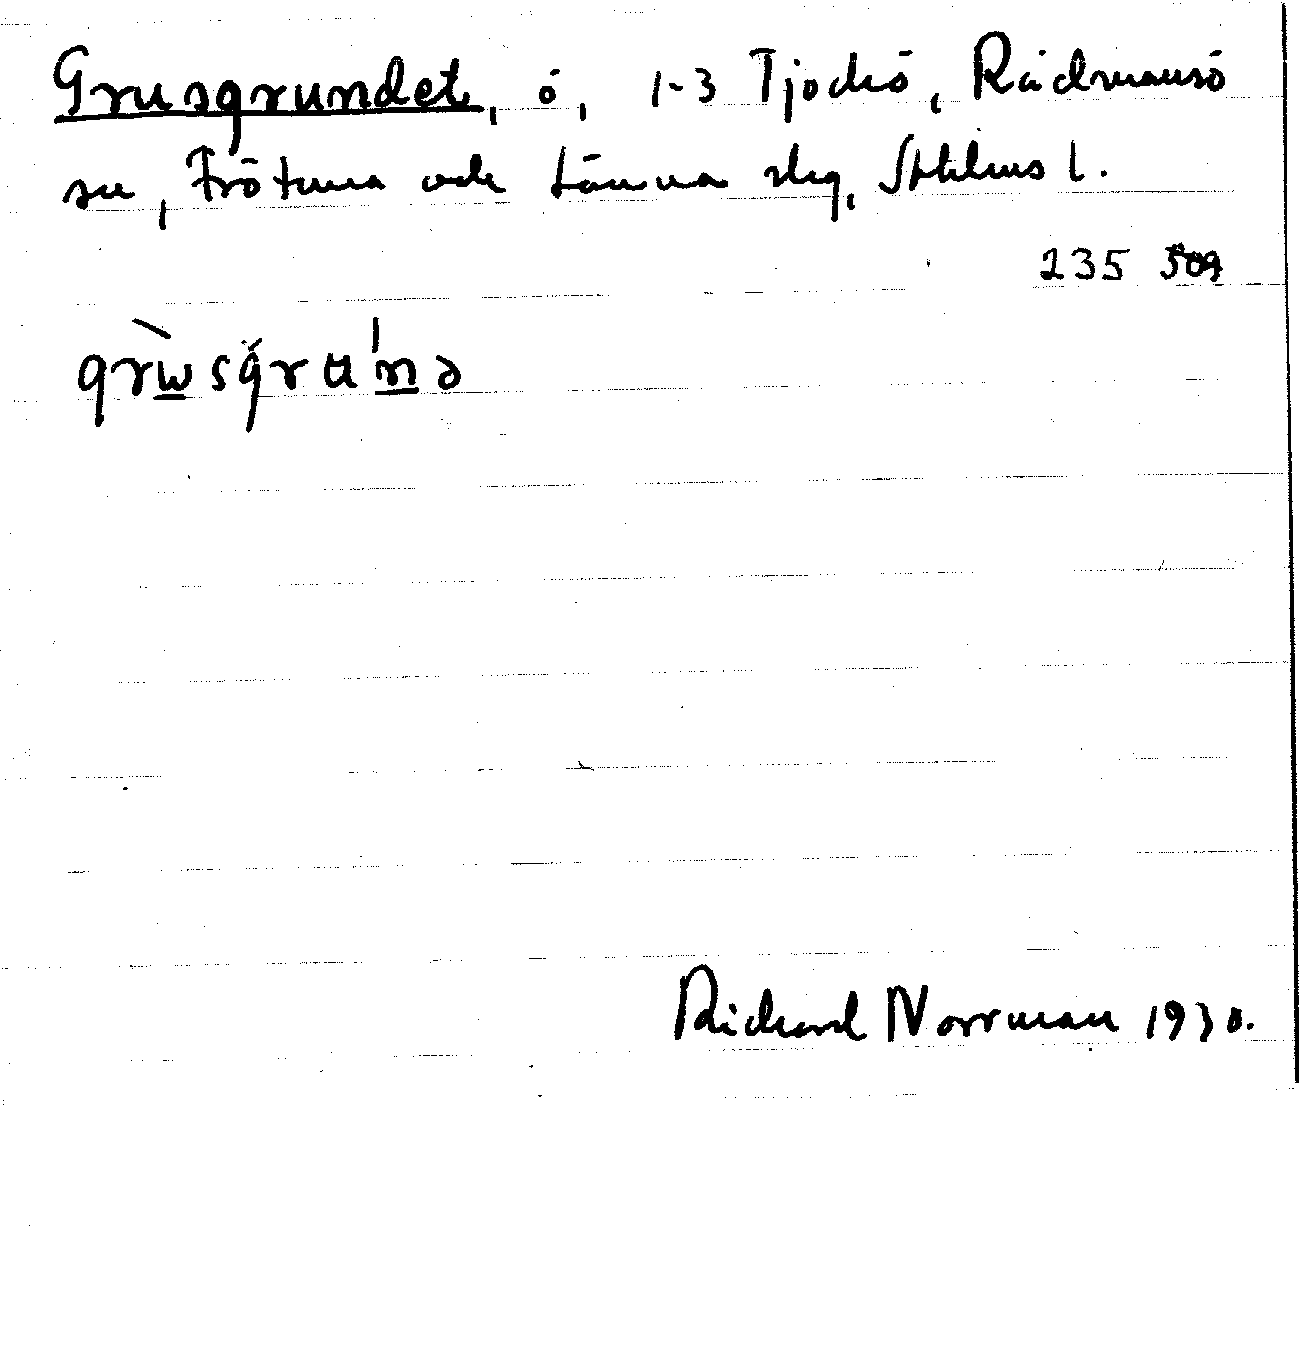 Grusgrundet, ö, 1-3 Tjockö, Rådmansö
sn, Frötuna och Länna slg, Sthlms l.
235 509
grùsgrun̲ə
Richard Norrman 1930.